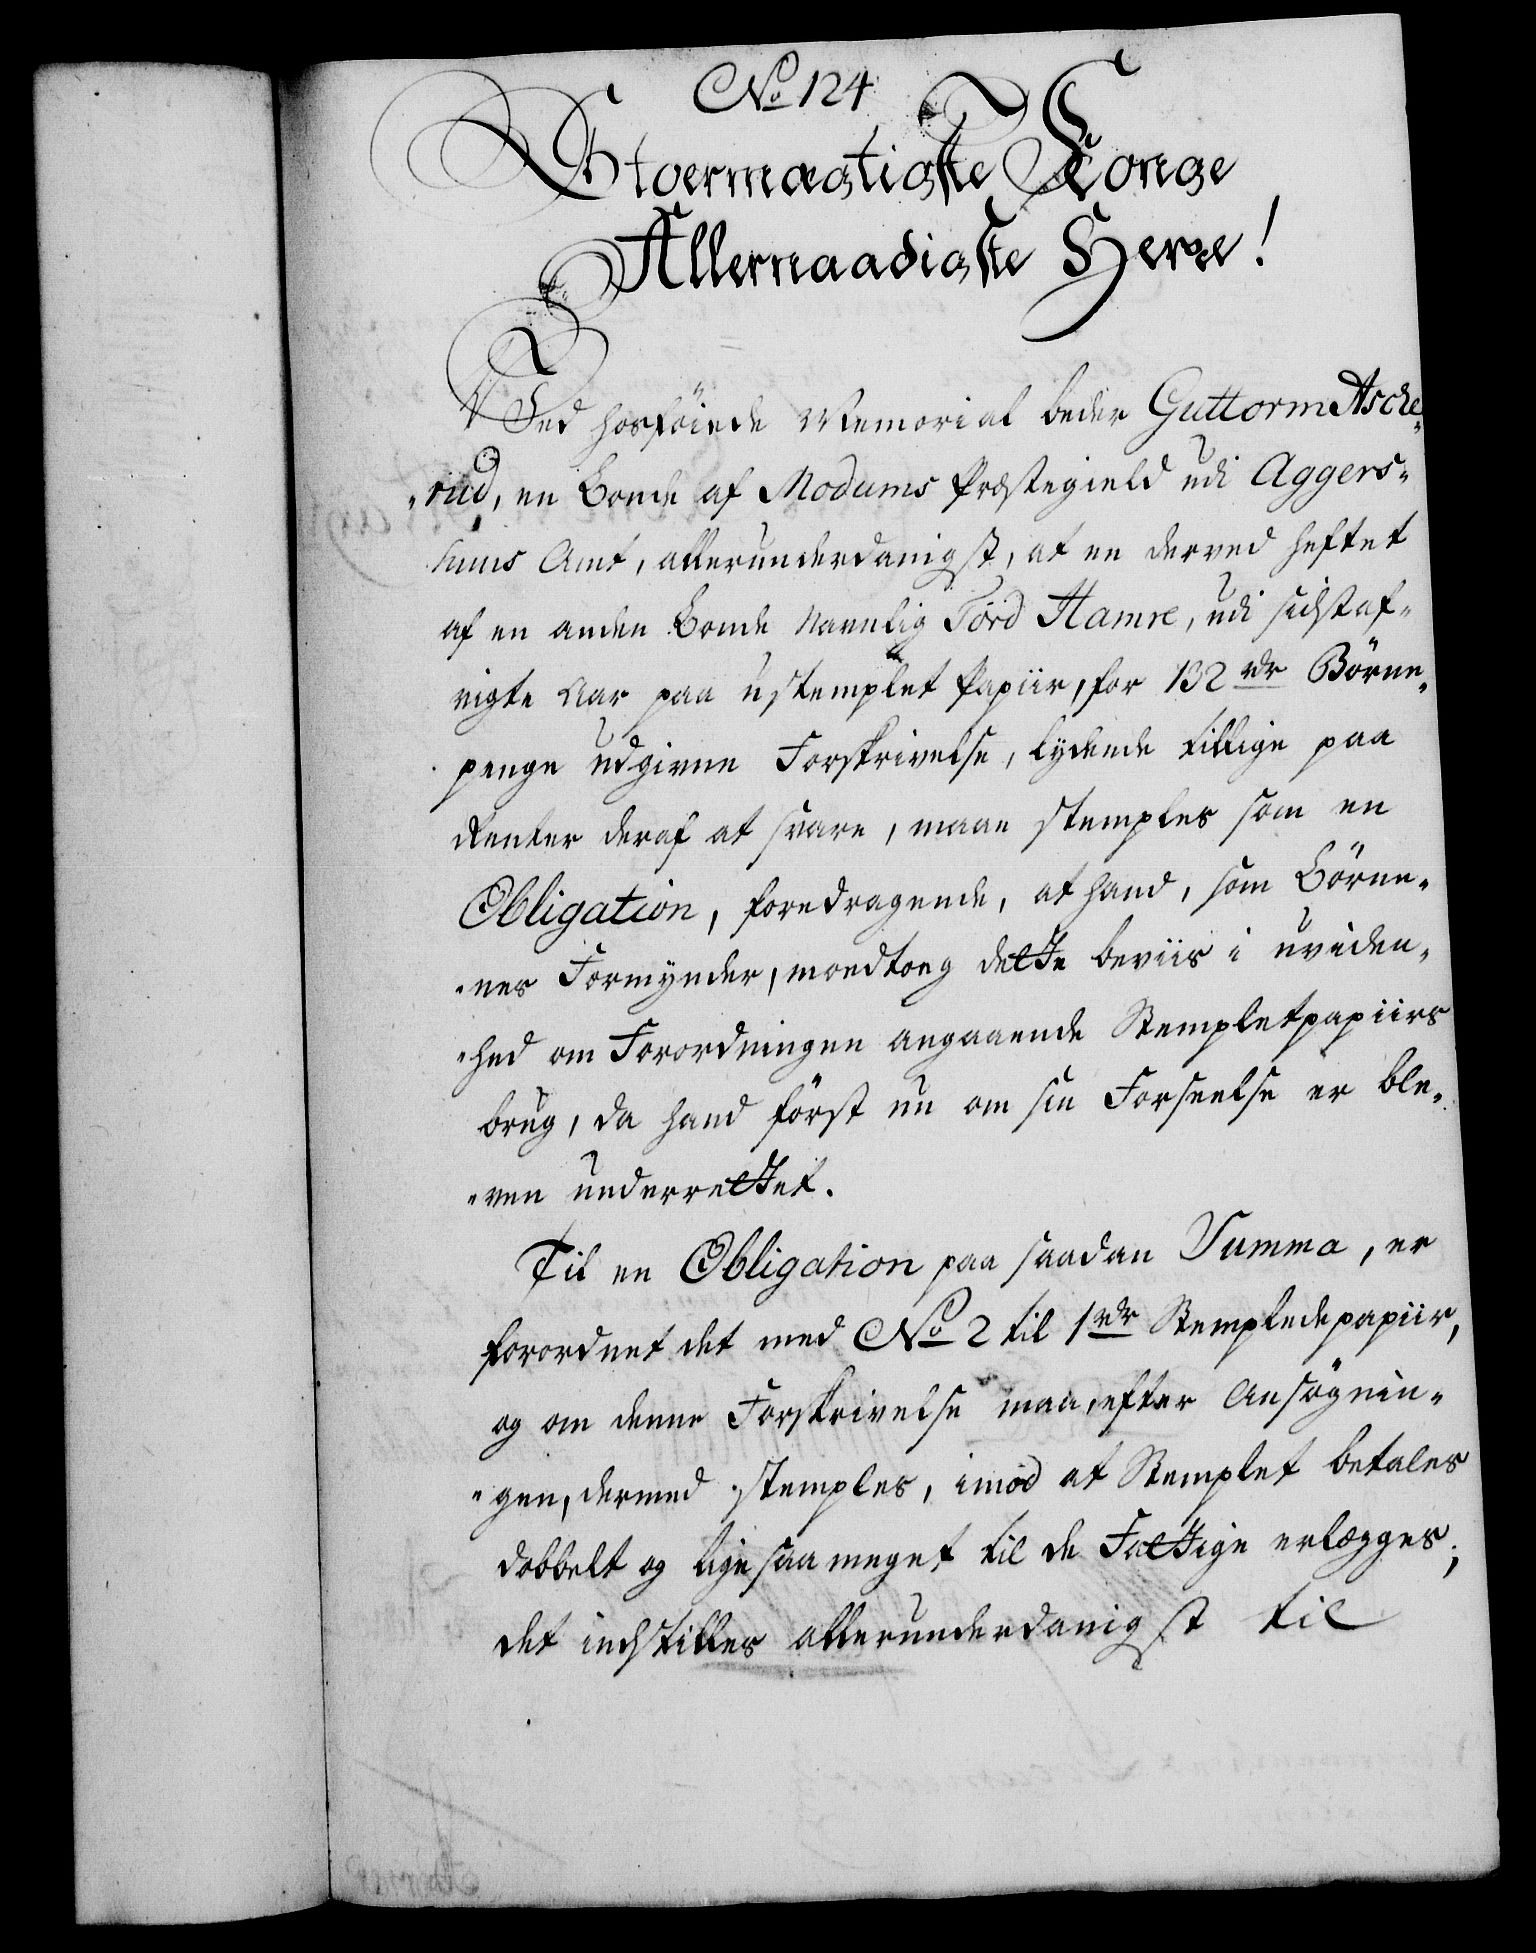 No 124
Stoermægtigste Konge
Allernaadigste Herre!
Ved hosföiede Memorial beder Guttorm Asche-
-rud, en Bonde af Modums Præstegield udi Aggers-
huus Amt, allerunderdanigst, at en derved heftet
af en anden Bonde navnlig Tord Hamre, udi sidstaf-
vigte Aar paa ustemplet Papiir, for 132 rdr Börne-
penge udgivne Forskrivelse, lydende tillige paa
Renter deraf at svare, maae stemples som en
Obligation, foredragende, at hand, som Börne-
-nes Formynder, modtog dette beviis i uviden-
-hed om Forordningen angaaende Stempletpapiirs
brug, da hand först nu om sin Forseelse er ble-
-ven underrettet.
Til en Obligation paa saadan Summa, er
forordnet det med No 2 til 1 rdr Stemplede papiir,
og om denne Forskrivelse maa, efter Ansögnin-
-gen, dermed stemples, imod at Stemplet betales
dobbelt og lige saa meget til de Fattige erlægges;
det indstilles allerunderdanigst til